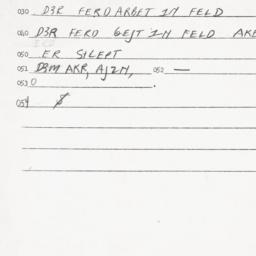 030 D3R FERD ARBET 1N FELD
040 D3R FERD GEJT 1N FELD AKE
050 ER SILEPT
051 D3M AKR, AJ2N, 052 —
053 0 .
054 $